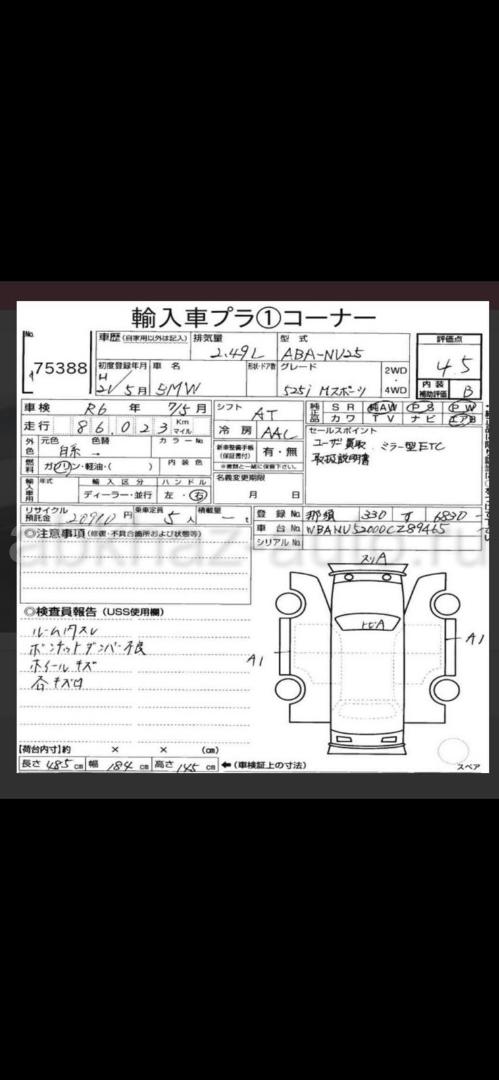 輸入車プラ①コーナー
No.
75388
車歴（自家用以外は記入）
排気量
2.49L
型式
ABA-NU25
評価点
4.5
内装補助評価
B
初度登録年月
H
21年 5月
車名
BMW
形状・ドア数
グレード
525i Mスポーツ
2WD
・
4WD
車検 R6 年 7/5 月
走行 86,023 Km マイル
シフト AT
冷房 AAC
純正品 SR 純AW PS PW
カワ TV ナビ エアB
外色 元色 白系 色替 → カラーNo.
燃料 ガソリン・軽油・( ) 内装色
新車整備手帳（保証書付） 有・無
※書類と一緒に保管下さい。
セールスポイント
ユーザー買取 ミラー型ETC
取扱説明書
輸入車用 年式 輸入区分 ハンドル
ディーラー・並行 左・右
名義変更期限
月 日
リサイクル預託金 20910 円 乗車定員 5人 積載量 － t
登録No. 那須 330 す 6830
車台No. WBANU52000CZ89465
シリアルNo.
◎注意事項（修復・不具合箇所および状態等）
◎検査員報告（USS使用欄）
ルーム内スレ
ボンネットダンパー不良
ホイールキズ
各キズ凹
スリA
トビA
A1
A1
【荷台内寸】約 × × (cm)
長さ 485 cm 幅 184 cm 高さ 145 cm ←（車検証上の寸法）
スペア